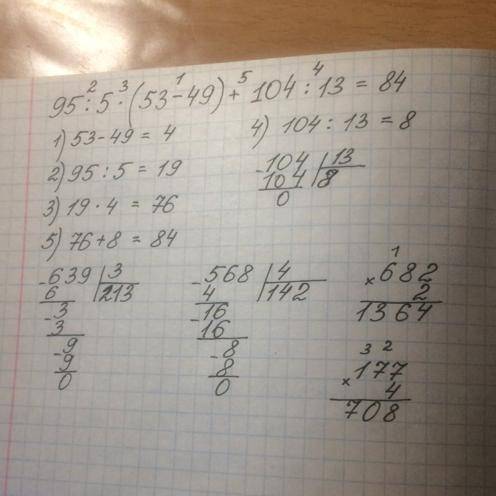 95:5·(53-49)+104:13=84
2 3 1 5 4
1) 53-49=4
2) 95:5=19
3) 19·4=76
5) 76+8=84
4) 104:13=8
-104|13
104|8
0
-639|3
6|213
-3
3
-9
9
0
-568|4
4|142
-16
16
-8
8
0
1
×682
2
1364
3 2
×177
4
708